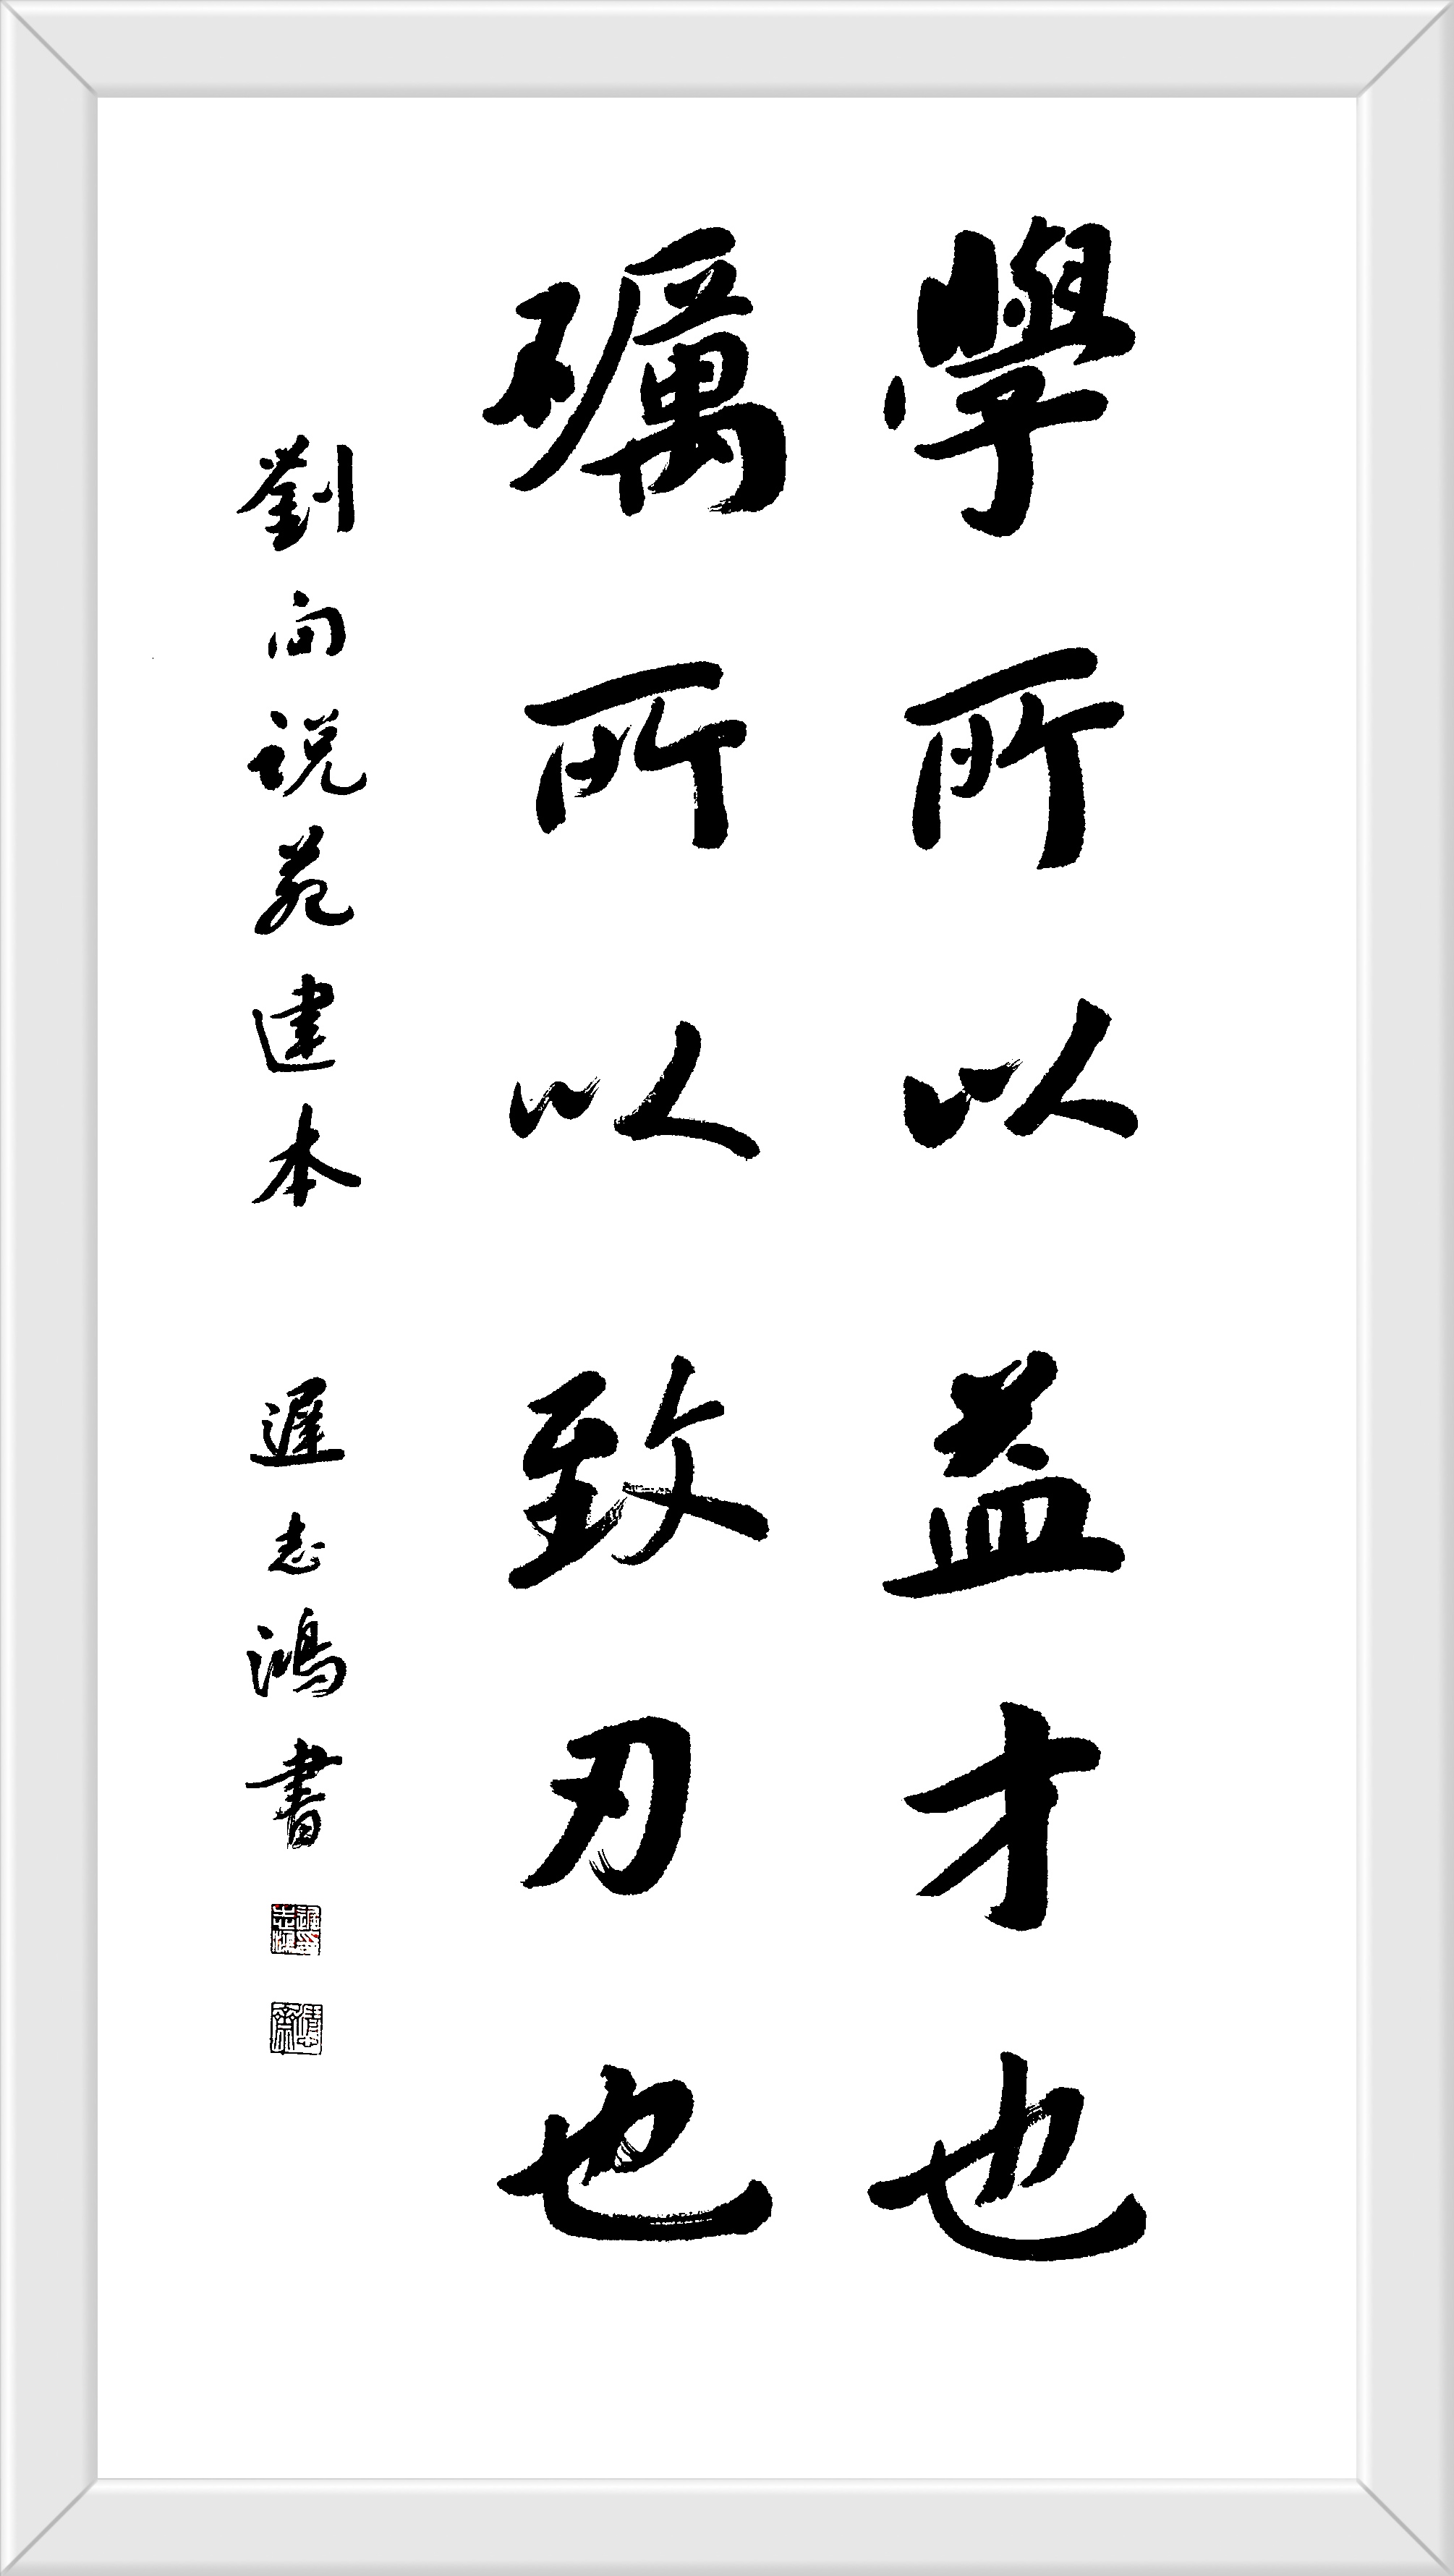 學所以益才也
礪所以致刃也
劉向说苑建本 遲志鴻書